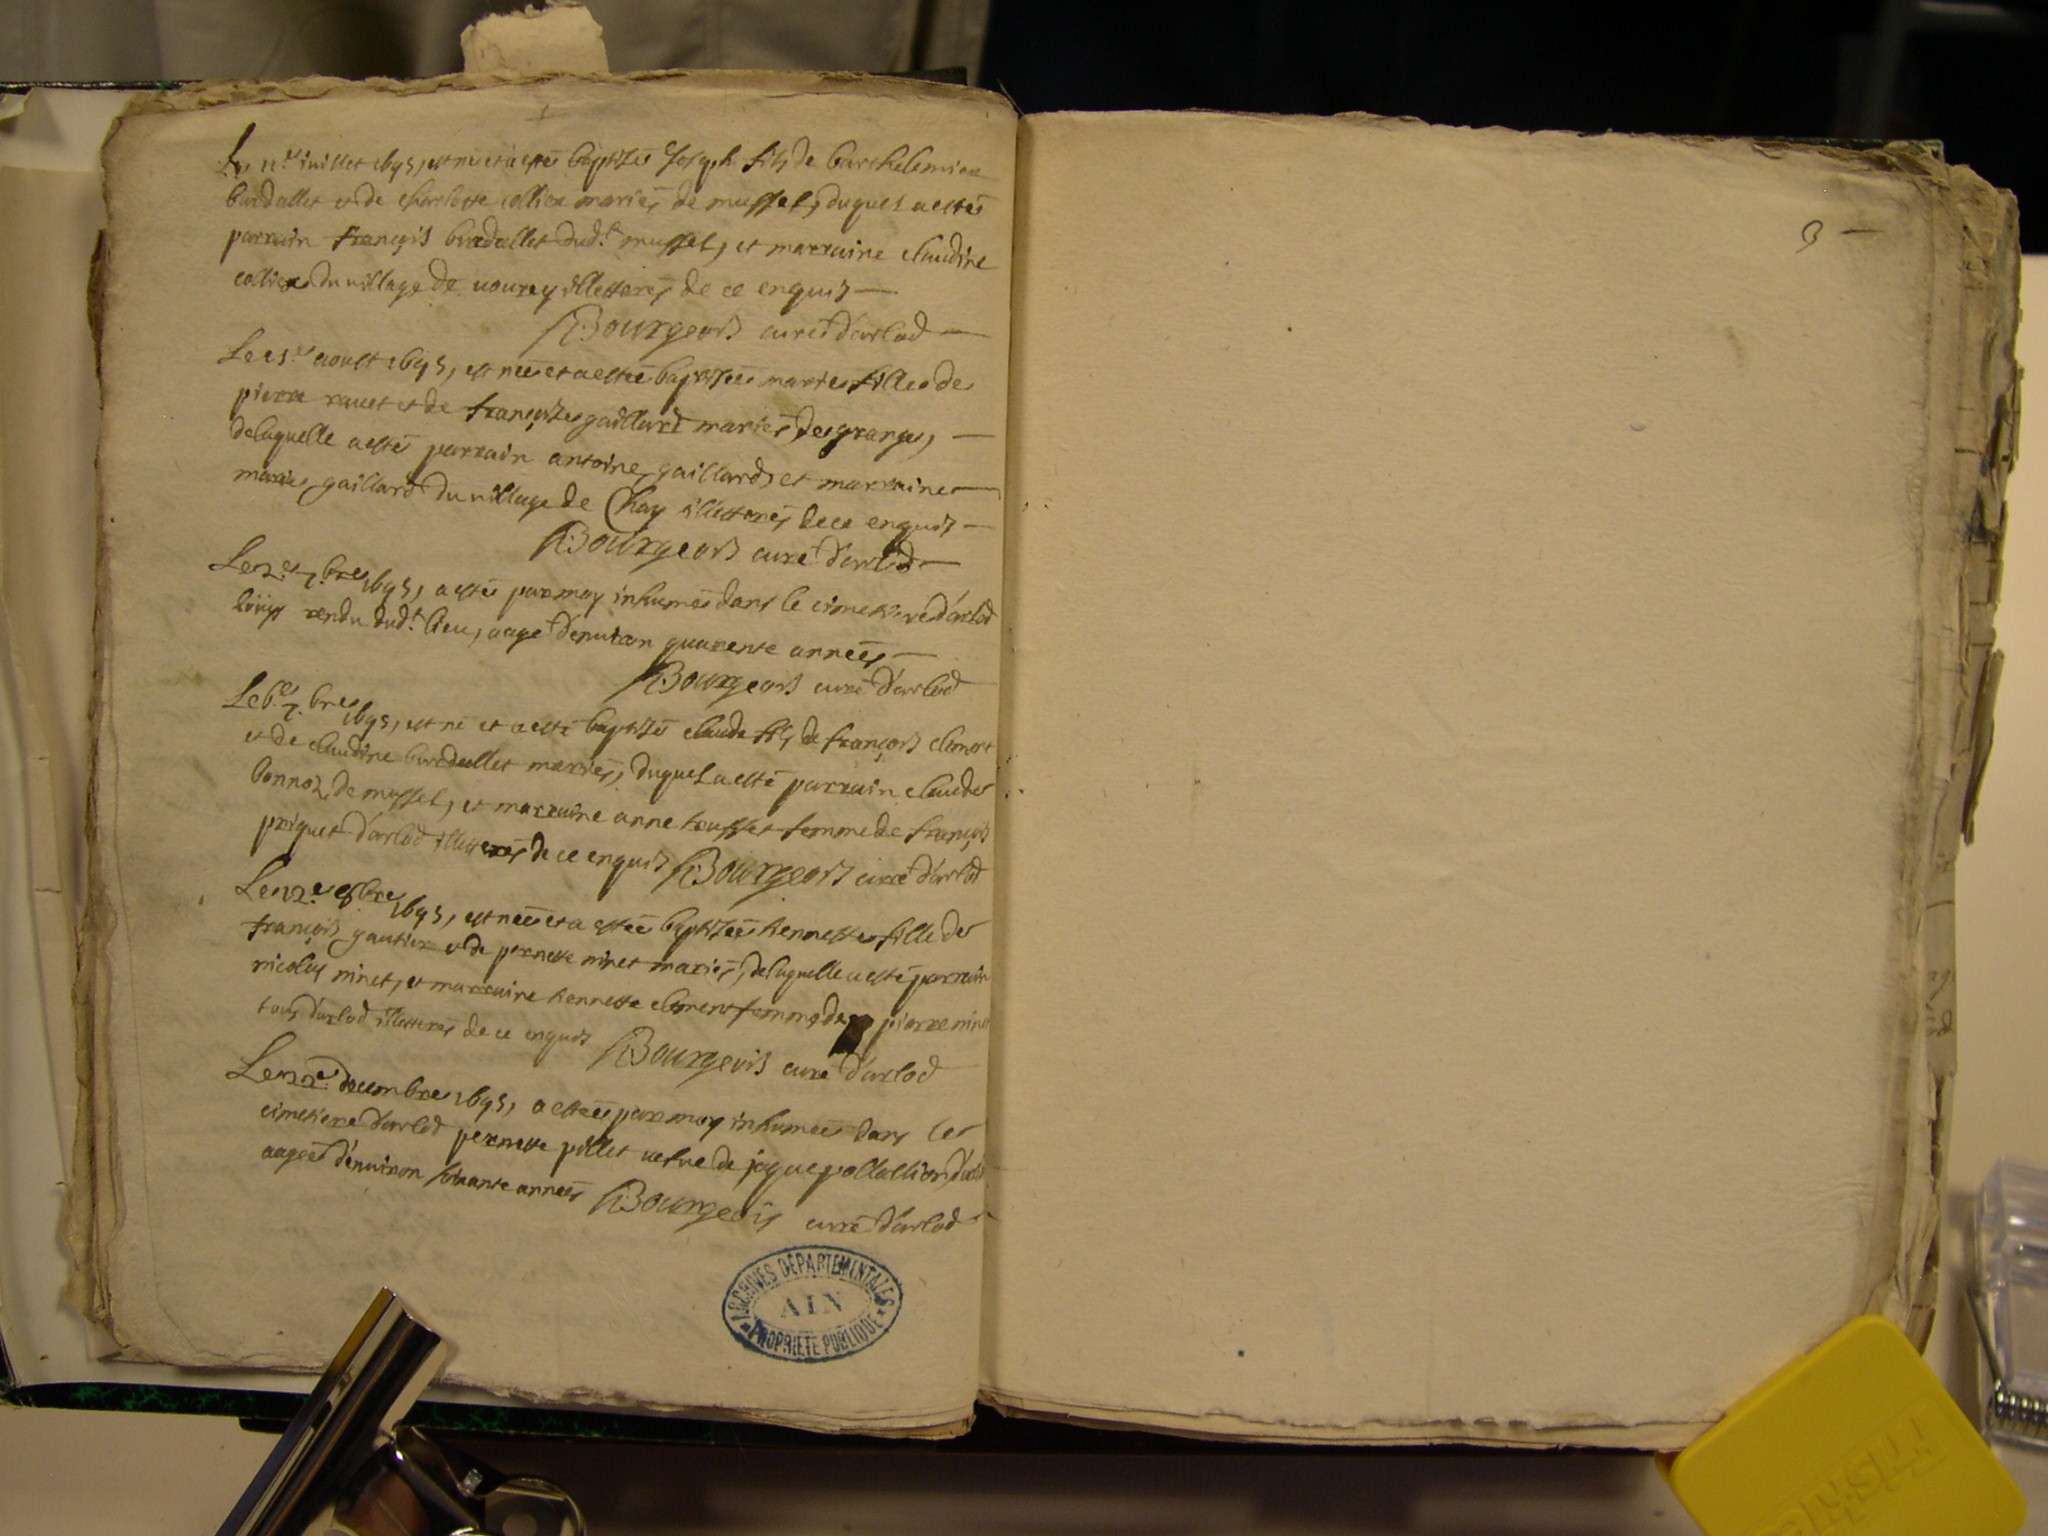 Le 11.e iuillet 1695, est né et a esté baptizé Joseph fils de barthelemi
burdallet et de charlotte collier mariés de mussel, duquel a esté
parrain françois burdallet dud.t mussel, et marraine claudine
collier du village de uourey illetterés de ce enquis —
Bourgeois curé d'arlod —
Le aoust 1695, est née et a estée baptizée marie fille de
pierre et de françoize gaillard mariés des granges, —
delaquelle a esté parrain antoine gaillard, et marraine —
marie gaillard du village de Chay illetterés de ce enquis —
Bourgeois curé d'arlod —
Le 2.e 7.bre 1695, a esté par moy inhumé dans le cimetiere d'arlod
rendu dud.t lieu, aagé d'enuiron quarente années —
Bourgeois curé d'arlod
Le 6.e 7.bre 1695, est né et a esté baptizé claude fils de françois clement
et de claudine burdallet mariés, duquel a esté parrain claude
bonnoz de mussel, et marraine anne femme de françois
priquet d'arlod illetterés de ce enquis Bourgeois curé d'arlod
Le 12.e 8bre 1695, est née et a estée baptizée hennette fille de
françois gautier et de pernette ninet mariés, delaquelle a esté parrain
nicolas ninet, et marraine hennette clement femme de pierre ninet
tous d'arlod illetterés de ce enquis Bourgeois curé d'arlod
Le 22.e decembre 1695, a estée par moy inhumée dans le
cimetiere d'arlod pernette pillet uefue de d'arlod
aagée d'enuiron années Bourgeois curé d'arlod
ARCHIVES DÉPARTEMENTALES
AIN
PROPRIÉTÉ PUBLIQUE
3 —
FISKARS